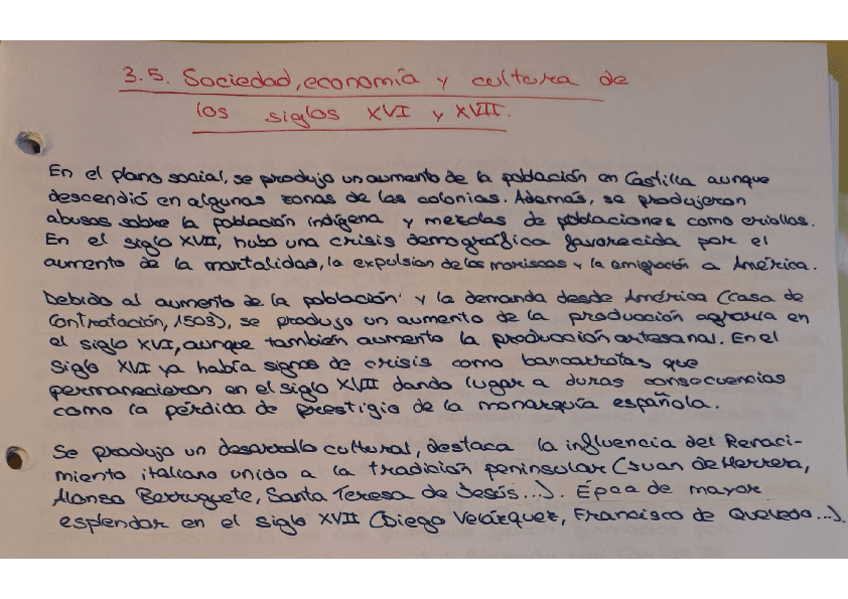 3.5. Sociedad, economía y cultura de
los siglos XVI y XVII.
En el plano social, se produjo un aumento de la población en Castilla aunque
descendió en algunas zonas de las colonias. Además, se produjeron
abusos sobre la población indígena y mezclas de poblaciones como criollos.
En el siglo XVII, hubo una crisis demográfica favorecida por el
aumento de la mortalidad, la expulsión de los moriscos y la emigración a América.
Debido al aumento de la población y la demanda desde América (Casa de
Contratación, 1503), se produjo un aumento de la producción agraria en
el siglo XVI, aunque también aumento la producción artesanal. En el
Siglo XVI ya había signos de crisis como bancarrotas que
permanecieron en el siglo XVII dando lugar a duras consecuencias
como la pérdida de prestigio de la monarquía española.
Se produjo un desarrollo cultural, destaca la influencia del Renaci-
miento italiano unido a la tradición peninsular (Juan de Herrera,
Alonso Berruguete, Santa Teresa de Jesús...). Época de mayor
esplendor en el siglo XVII (Diego Velázquez, Francisco de Quevedo...).